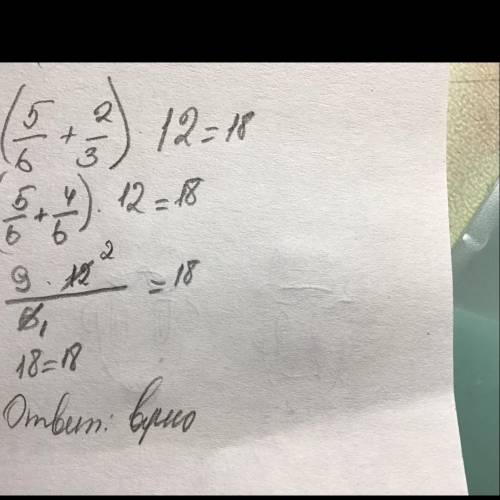 (5/6 + 2/3) · 12 = 18
(5/6 + 4/6) · 12 = 18
9 · 12 2 / 6 1 = 18
18 = 18
Ответ: верно